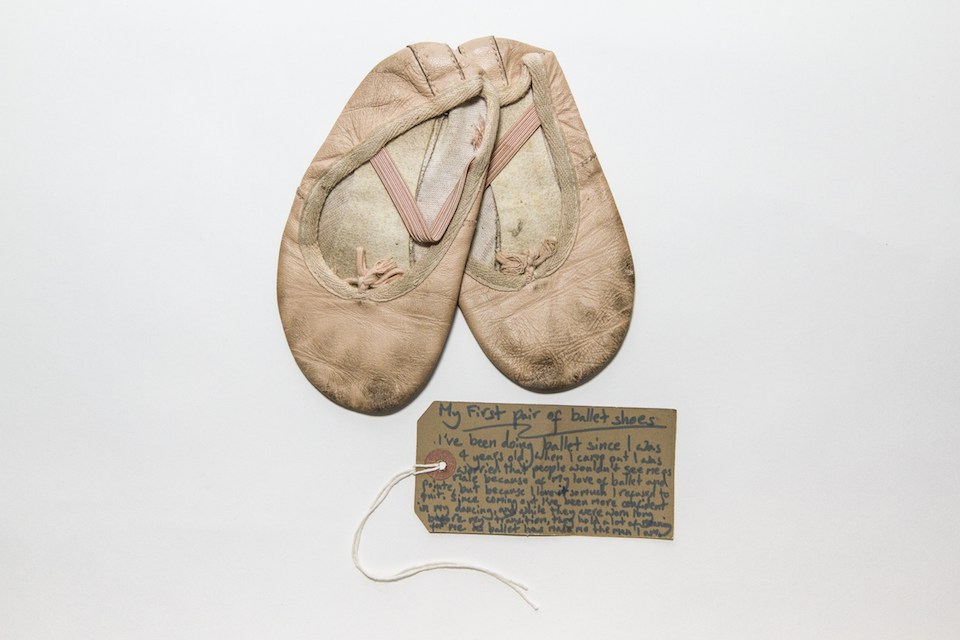 My First pair of ballet shoes
I've been doing ballet since I was
4 years old, when I came out I was
worried that people wouldn't see me as
male because of my love of ballet and
pointe, but because I love it so much I refused to
quit. Since coming out I've been more confident
in my dancing, and while they were worn long
before my transition, they hold a lot of meaning
for me as ballet has made me the man I am